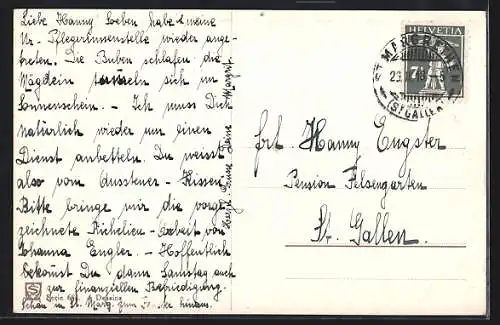 Liebe Hanny! Soeben habe meine
Ur-Pflegerinnenstelle wieder ange-
treten. Die Buben schlafen, die
Mägdlein tummeln sich im
Sonnenschein. - Ich muss Dich
natürlich wieder um einen
Dienst anbetteln. Du weisst
also vom Aussteuer-Kissen.
Bitte bringe mir die vorge-
zeichnete Richelieu-Arbeit von
Johanna Engler. - Hoffentlich
bekommst Du dann Samstag auch
zur finanziellen Befriedigung.
Schau in St. Marg. zum hinaus.
Herzl. Deine Margrit.
HELVETIA
7½
ST. MARGRETHEN
(ST. GALLEN)
Frl. Hanny Engster
Pension Felsengarten
St. Gallen.
Serie Dessins